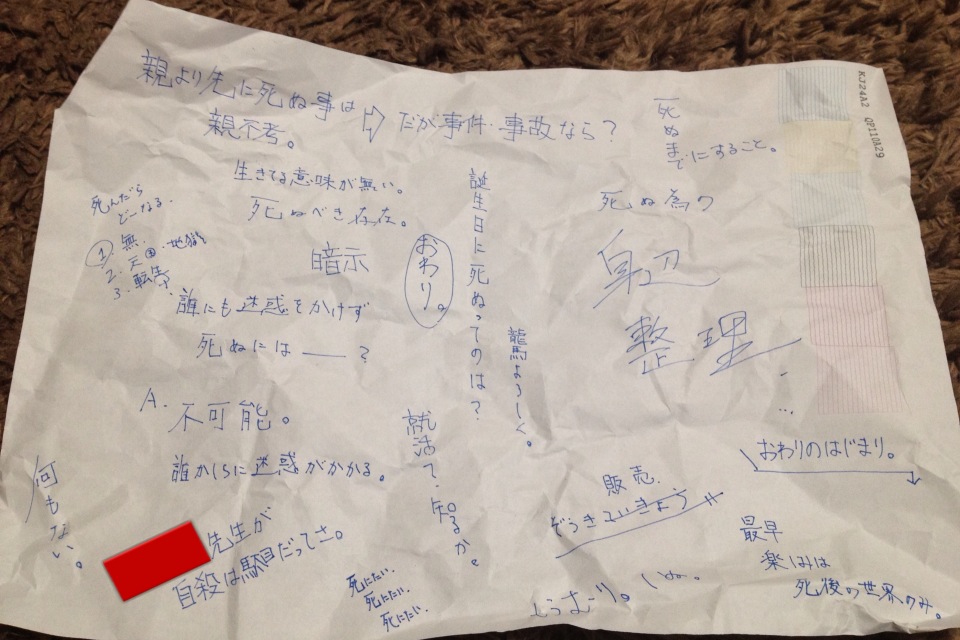 親より先に死ぬ事は
親不孝。
⇨ だが事件・事故なら?
死ぬまでにすること。
KJ24A2 QP110A29
生きてる意味が無い。
死ぬべき存在。
死んだら
どーなる.
① 無.
2. 天国・地獄
3. 転生
暗示
おわり。
誕生日に死ぬってのは?
龍馬よろしく。
死ぬ為の
身辺
整理...
誰にも迷惑をかけず
死ぬには――?
A. 不可能。
誰かしらに迷惑がかかる。
就活?知るか。
おわりのはじまり。
何もない。
先生が
自殺は駄目だってさ。
死にたい.
死にたい.
死にたい.
販売.
ぞうきていきょう
しゅーりょう。
最早
楽しみは
死後の世界のみ。